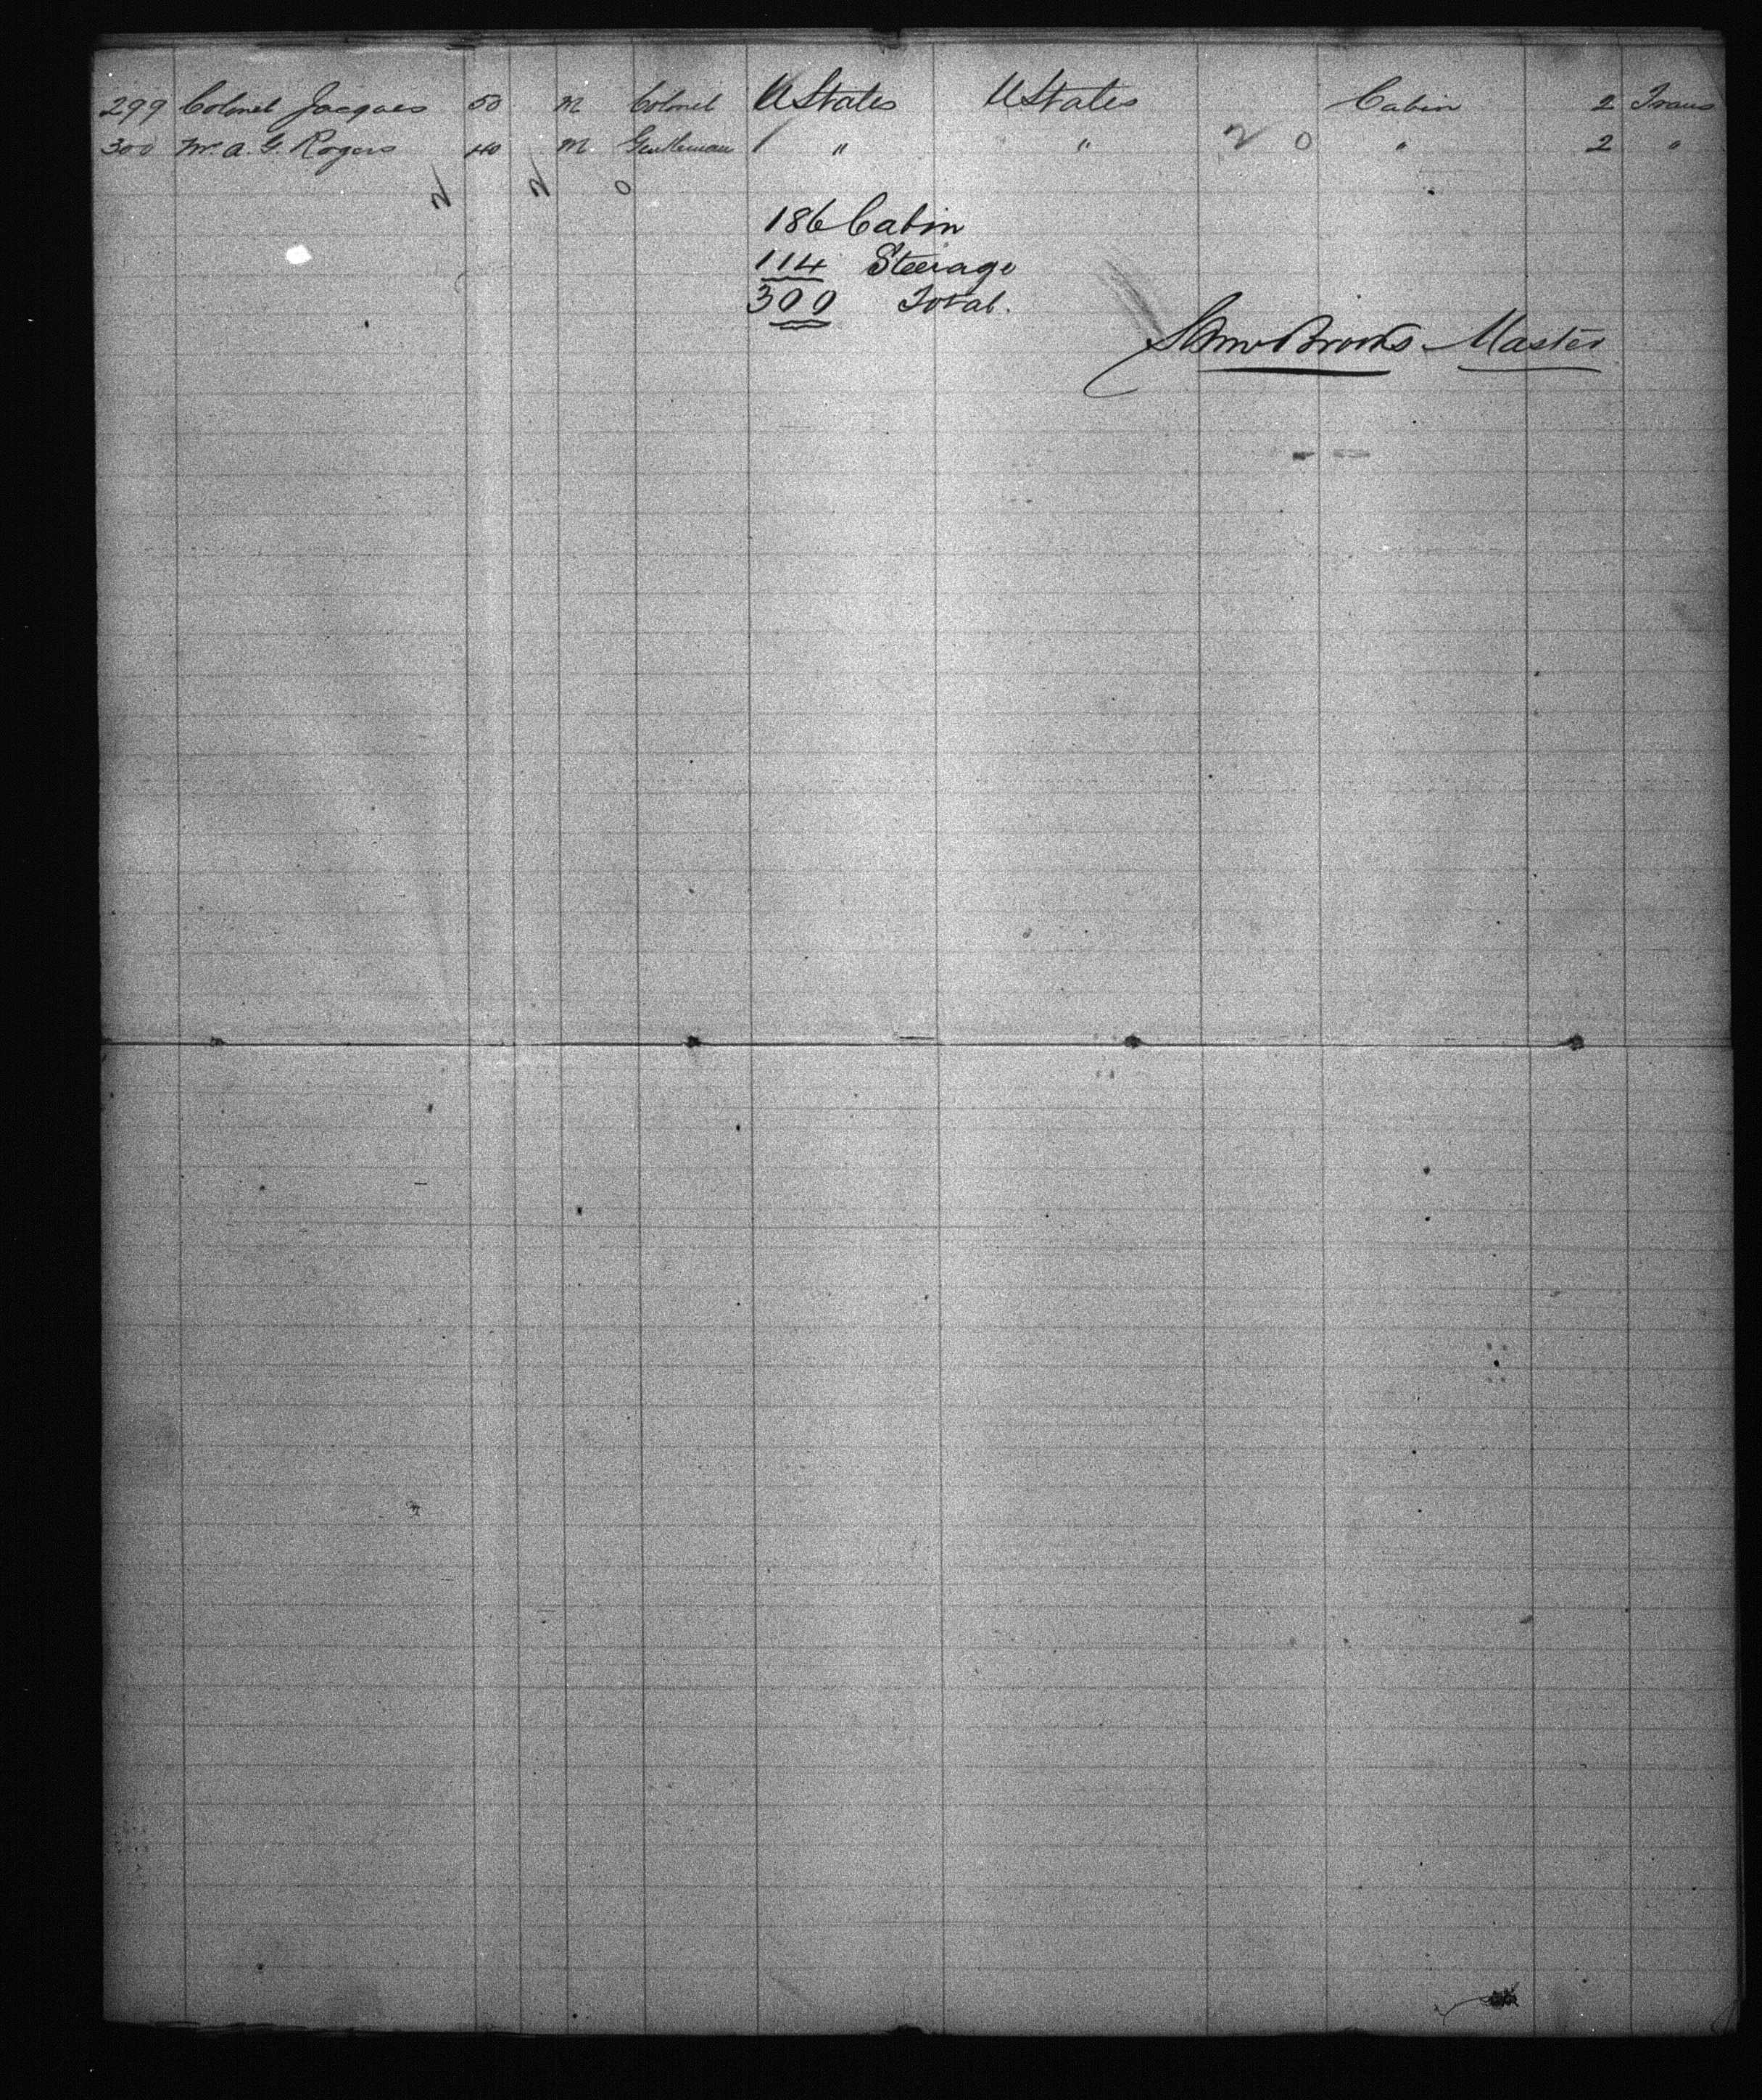 299 Colonel Jacques 50 M Colonel UStates UStates Cabin 2 Trans
300 Mr. A. G. Rogers 40 M Gentleman / " " 2 0 " 2 "
2 2 0
186 Cabin
114 Steerage
300 Total.
Brooks Master